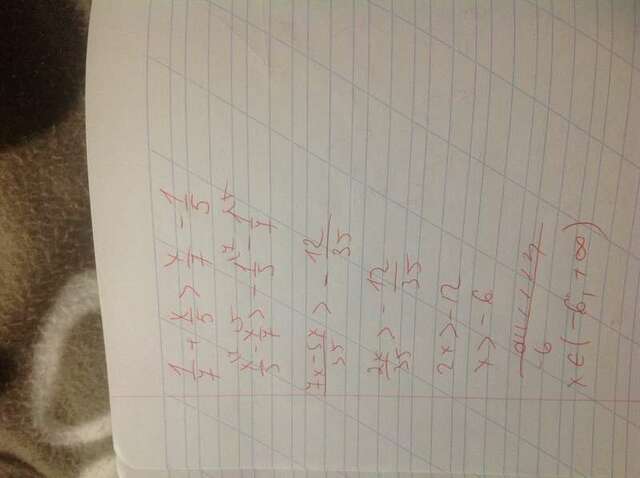 1/7 + x/5 > x/7 - 1/5
x/5 \7 - x/7 \5 > - 1/5 \7 - 1/7 \5
7x-5x/35 > - 12/35
2x/35 > - 12/35
2x > -12
x > -6
-6
x ∈ (-6, +∞)